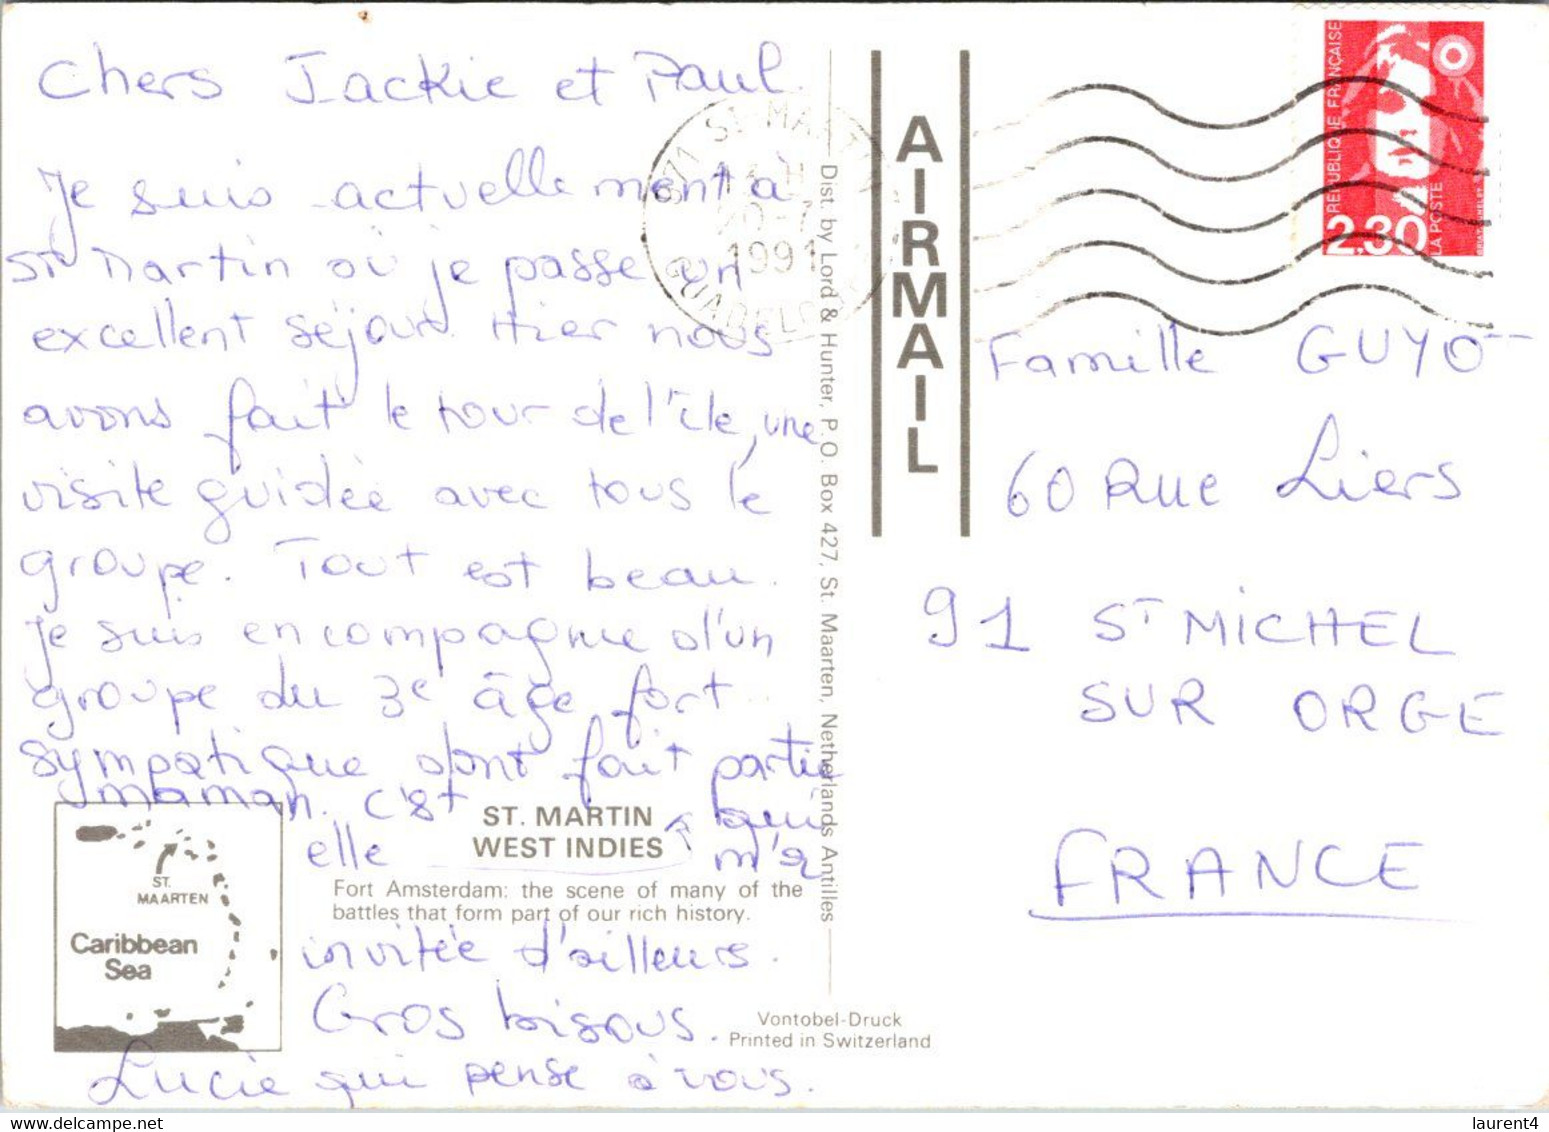 Chers Jackie et Paul.
Je suis actuellement à
St Martin où je passe un
excellent séjour. Hier nous
avons fait le tour de l'île, une
visite guidée avec tous le
groupe. Tout est beau.
Je suis en compagnie d'un
groupe du 3e âge fort
sympatique dont fait partie
maman. C'est
elle qui
m'a
invitée d'ailleurs.
Gros bisous.
Lucie qui pense à vous.
ST. MARTIN
WEST INDIES
Fort Amsterdam: the scene of many of the
battles that form part of our rich history.
ST.
MAARTEN
Caribbean
Sea
Dist. by Lord & Hunter, P.O. Box 427, St. Maarten, Netherlands Antilles
Vontobel-Druck
Printed in Switzerland
AIRMAIL
971 ST MARTIN
1991
GUADELOUPE
REPUBLIQUE FRANÇAISE
2,30
LA POSTE
Famille GUYOT
60 Rue Liers
91 ST MICHEL
SUR ORGE
FRANCE
laurent4